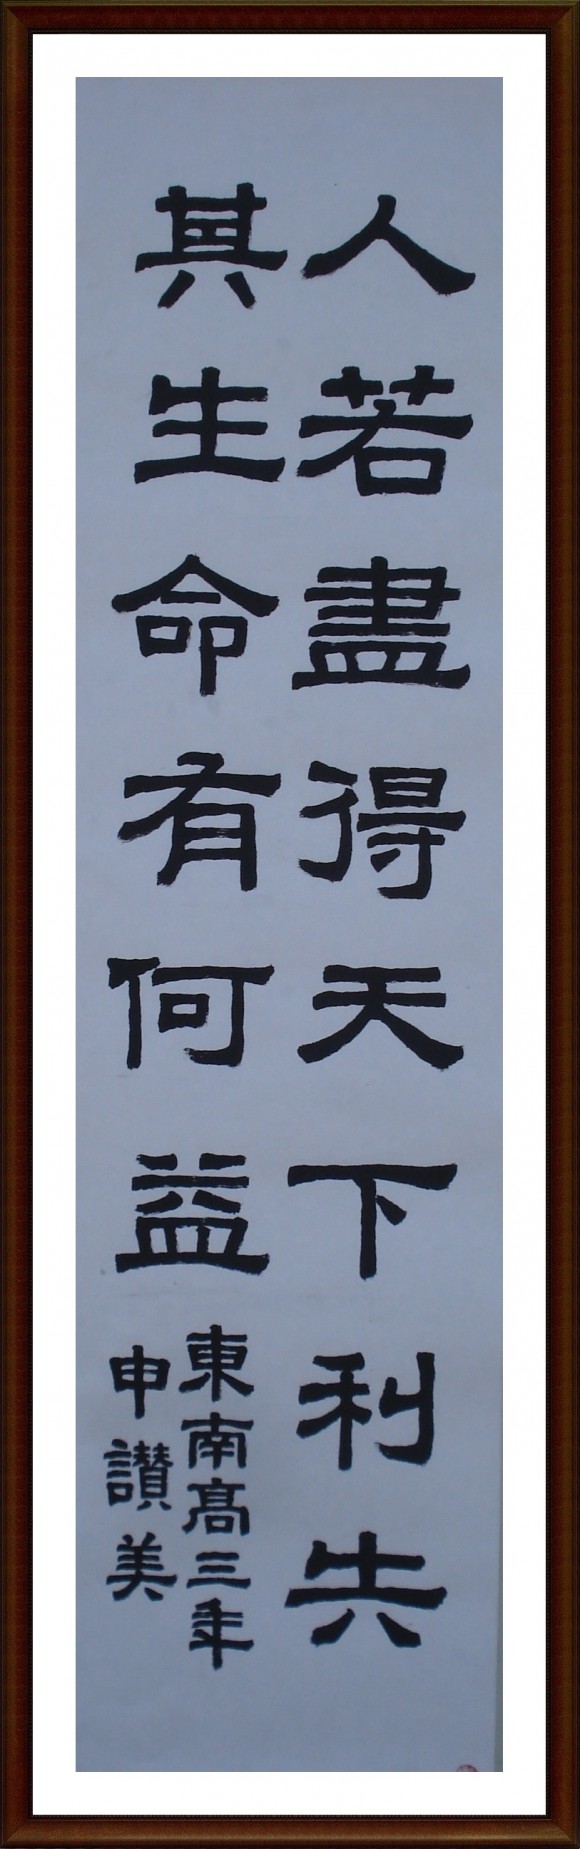 人若盡得天下利失
其生命有何益
東南高三年
申讚美